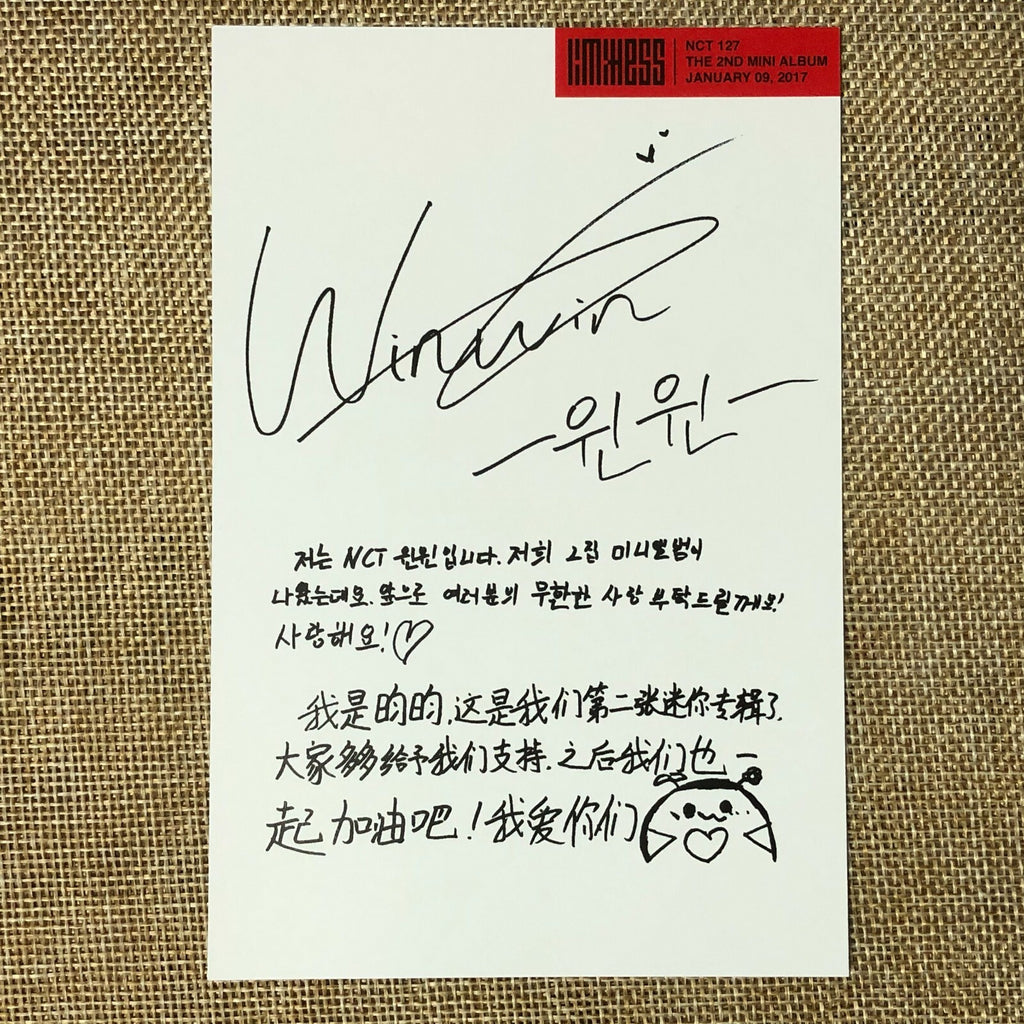 LIMITLESS
NCT 127
THE 2ND MINI ALBUM
JANUARY 09, 2017
WinWin
-윈윈-
저는 NCT 윈윈입니다. 저희 2집 미니앨범이
나왔는데요. 앞으로 여러분의 무한한 사랑 부탁드릴께요!
사랑해요!♡
我是昀昀,这是我们第二张迷你专辑了.
大家多多给予我们支持.之后我们也一
起加油吧!我爱你们